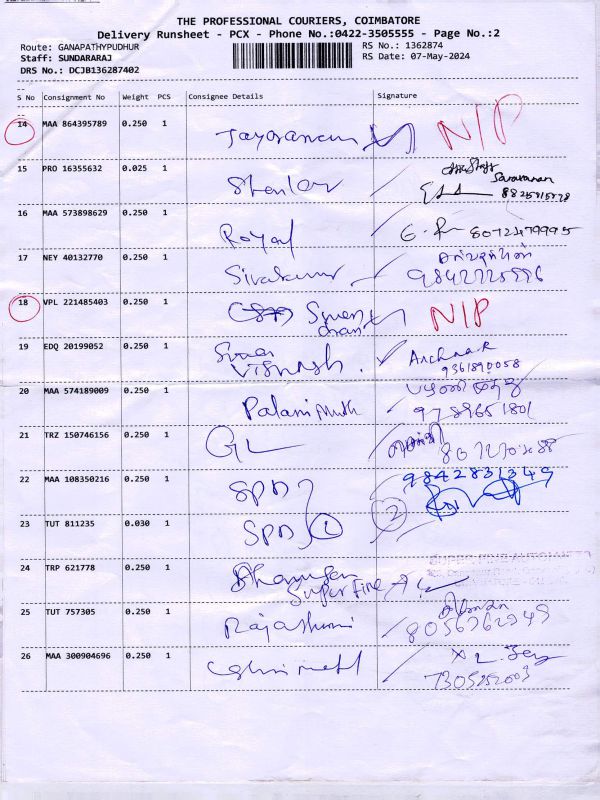 THE PROFESSIONAL COURIERS, COIMBATORE
Delivery Runsheet - PCX - Phone No.:0422-3505555 - Page No.:2
Route: GANAPATHYPUDHUR RS No.: 1362874
Staff: SUNDARARAJ RS Date: 07-May-2024
DRS No.: DCJB136287402
--
S No Consignment No Weight PCS Consignee Details Signature
--
14 MAA 864395789 0.250 1 N/P
15 PRO 16355632 0.025 1 Saravanan
16 MAA 573898629 0.250 1 Royal 8072479995
17 NEY 40132770 0.250 1 Sivakumar
18 VPL 221485403 0.250 1 N/P
19 EDQ 20199052 0.250 1 Archna.R
Vignesh. 9361890058
20 MAA 574189009 0.250 1 Palani Muth
9789651801
21 TRZ 150746156 0.250 1 GL
22 MAA 108350216 0.250 1 SPD 9842831349
23 TUT 811235 0.030 1 SPD 1 2
24 TRP 621778 0.250 1
Super Fine A
25 TUT 757305 0.250 1
8056762949
26 MAA 300904696 0.250 1
7305252003